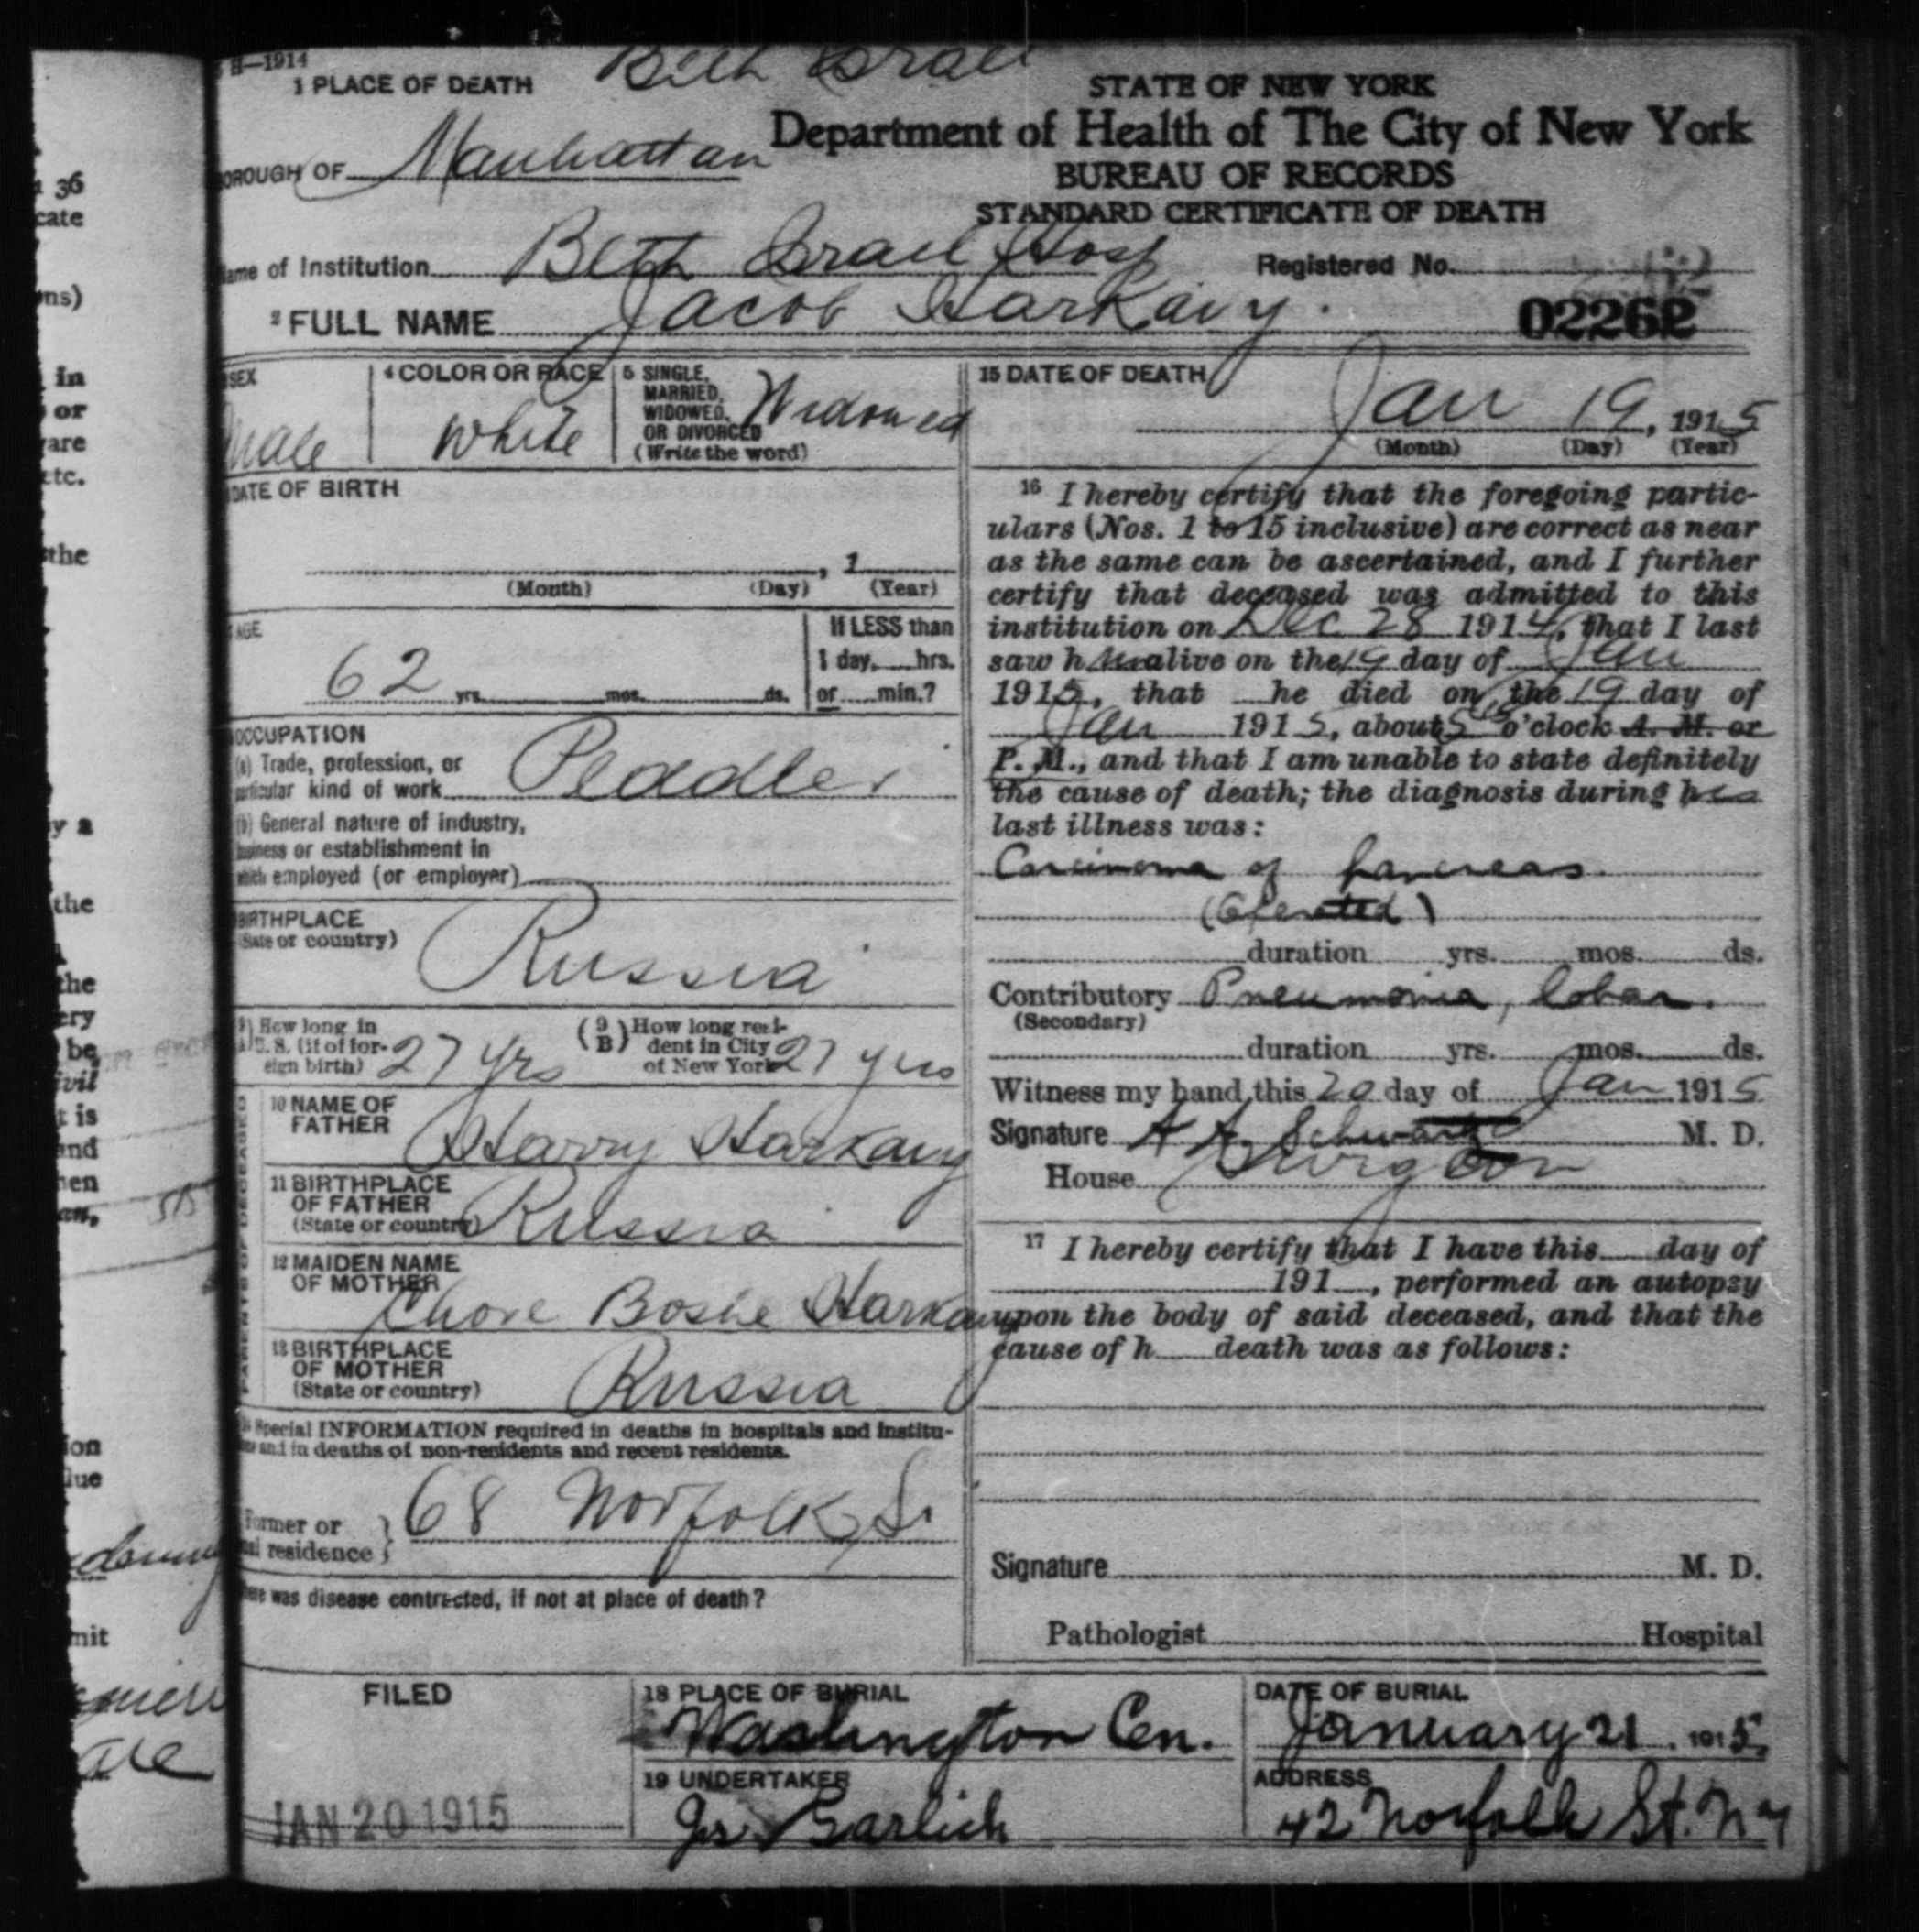 H—1914
1 PLACE OF DEATH
Beth Israel
STATE OF NEW YORK
Department of Health of The City of New York
BUREAU OF RECORDS
STANDARD CERTIFICATE OF DEATH
OROUGH OF Manhattan
ame of Institution Beth Israel Hosp
Registered No.
02262
2 FULL NAME Jacob Harkavy.
SEX
Male
4 COLOR OR RACE
White
5 SINGLE,
MARRIED,
WIDOWED,
OR DIVORCED
(Write the word)
Widowed
DATE OF BIRTH
, 1
(Month) (Day) (Year)
AGE
62 yrs. mos. ds.
If LESS than
1 day, hrs.
or min.?
OCCUPATION
(a) Trade, profession, or
particular kind of work Peddler
(b) General nature of industry,
business or establishment in
which employed (or employer)
BIRTHPLACE
(State or country)
Russia
How long in
U. S. (if of for-
eign birth) 27 yrs
(9 B) How long resi-
dent in City
of New York 27 yrs
PARENTS OF DECEASED
10 NAME OF
FATHER
Harry Harkavy
11 BIRTHPLACE
OF FATHER
(State or country)
Russia
12 MAIDEN NAME
OF MOTHER
Chove Boshe Harkavy
13 BIRTHPLACE
OF MOTHER
(State or country)
Russia
Special INFORMATION required in deaths in hospitals and institu-
and in deaths of non-residents and recent residents.
Former or
residence } 68 Norfolk St
was disease contracted, if not at place of death?
15 DATE OF DEATH
Jan 19, 1915
(Month) (Day) (Year)
16 I hereby certify that the foregoing partic-
ulars (Nos. 1 to 15 inclusive) are correct as near
as the same can be ascertained, and I further
certify that deceased was admitted to this
institution on Dec 28 1914, that I last
saw him alive on the 19 day of Jan
1915, that he died on the 19 day of
Jan 1915, about 5 o'clock A. M. or
P. M., and that I am unable to state definitely
the cause of death; the diagnosis during his
last illness was:
Carcinoma of pancreas.
(Operated)
duration yrs. mos. ds.
Contributory Pneumonia, lobar.
(Secondary)
duration yrs. mos. ds.
Witness my hand this 20 day of Jan 1915
Signature A A Schwartz M. D.
House Surgeon
17 I hereby certify that I have this day of
191 , performed an autopsy
upon the body of said deceased, and that the
cause of h death was as follows:
Signature M. D.
Pathologist Hospital
FILED
JAN 20 1915
18 PLACE OF BURIAL
Washington Cem.
DATE OF BURIAL
January 21. 1915.
19 UNDERTAKER
Js Garlick
ADDRESS
42 Norfolk St. NY